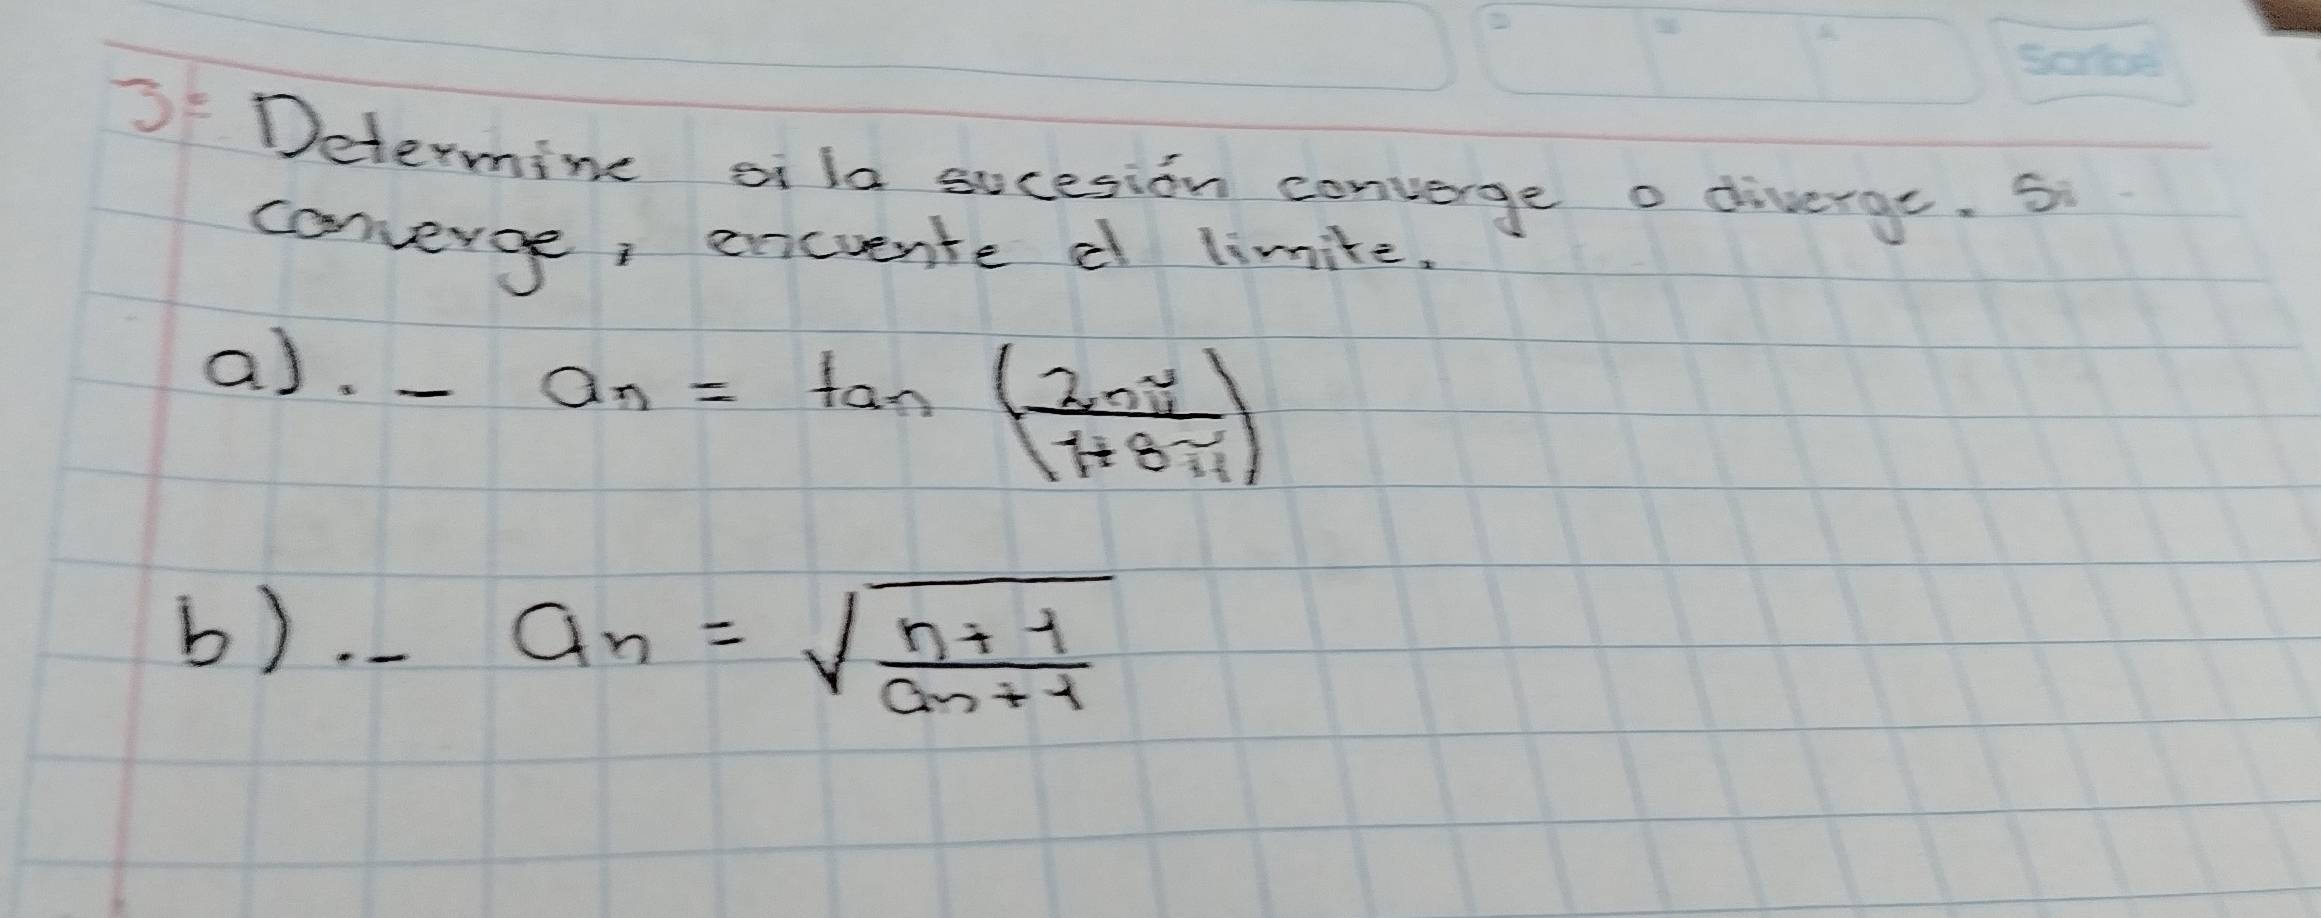 Scribe
3= Determine si la sucesión converge o diverge. Si
converge, encuente el limite.
a).- an = tan (2nπ / 1+8π)
b).- an = √(n+1 / an+1)